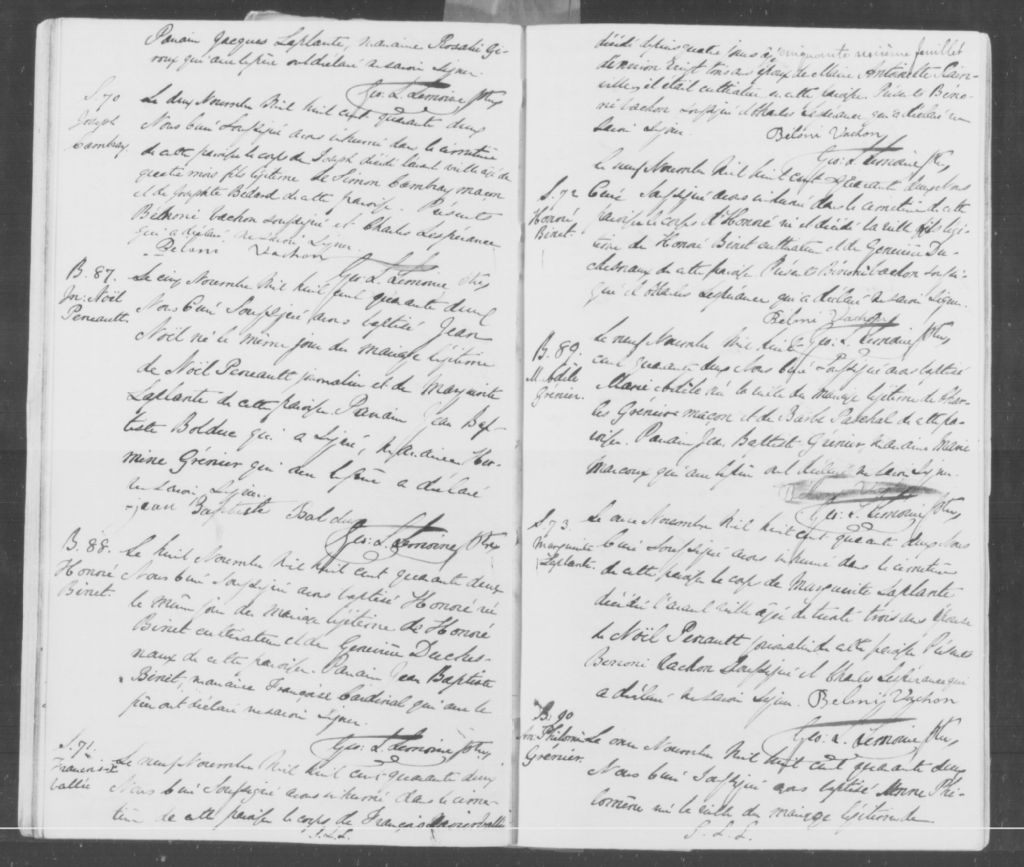 Parain Jacques Laplante, maraine Rosalie Gi-
roux qui avec le père ont déclaré ne savoir signer.
Geo. L. Lemoine Ptre
S. 70
Joseph
Cambray
Le deux Novembre Mil huit cent quarante deux
Nous Curé Soussigné avons inhumé dans le cimetière
de cette paroisse le corps de Joseph décédé l'avant veille agé de
quatre mois fils légitime de Simon Cambray maçon
et de Josephte Bedard de cette paroisse. Présents
Béhoni Vachon soussigné et Charles Lespérance
qui a déclaré ne savoir signer.
Beloni Vachon
Geo. L. Lemoine Ptre
B. 87.
Jn. Noël
Pereault.
Le cinq Novembre Mil huit cent quarante deux
Nous Curé Soussigné avons baptisé Jean
Noël né le même jour du mariage légitime
de Noël Pereault journalier et de Marguerite
Laplante de cette paroisse Parain Jean Bap-
tiste Bolduc qui a signé, maraine Her-
mine Grénier qui avec le père a déclaré
ne savoir signer.
Jean Baptiste Bolduc
Geo. L. Lemoine Ptre
B. 88.
Honoré
Binet.
Le huit Novembre Mil huit cent quarante deux
Nous Curé Soussigné avons baptisé Honoré né
le même jour du mariage légitime de Honoré
Binet cultivateur et de Genevieve Duches-
naux de cette paroisse. Parain Jean Baptiste
Binet, maraine Françoise Cardinal qui avec le
père ont déclaré ne savoir signer.
Geo. L. Lemoine Ptre
S. 71.
François X
Vallée
Le neuf Novembre Mil huit cent quarante deux
Nous Curé Soussigné avons inhumé dans le cime-
tière de cette paroisse le corps de François Xavier Vallée
G. L. L.
cinquante neuvième feuillet
décédé depuis quatre jours agé
d'environ vingt trois ans époux de Marie Antoinette
il était cultivateur en cette paroisse. Présents Béno-
ni Vachon Soussigné et Charles Lespérance qui a déclaré ne
savoir signer.
Béloni Vachon
Geo. L. Lemoine Ptre
S. 72
Honoré
Binet.
Le neuf Novembre Mil huit cent quarante deux Nous
Curé Soussigné avons inhumé dans le cimetière de cette
paroisse le corps d'Honoré né et décédé la veille fils légi-
time de Honoré Binet cultivateur et de Genevieve Du-
chesnaux de cette paroisse Présents Bénoni Vachon Soussi-
gné et Charles Lespérance qui a déclaré ne savoir signer.
Béloni Vachon
Geo. L. Lemoine Ptre
B. 89.
M. Adèle
Grénier.
Le neuf Novembre Mil huit
cent quarante deux Nous Curé Soussigné avons baptisé
Marie Adèle née la veille du mariage légitime de Char-
les Grénier maçon et de Barbe Paschal de cette pa-
roisse. Parain Jean Baptiste Grénier, maraine Marie
Marcoux qui avec le père ont déclaré ne savoir signer.
Geo. L. Lemoine Ptre
S. 73.
Marguerite
Laplante.
Le onze Novembre Mil huit cent quarante deux Nous
Curé Soussigné avons inhumé dans le cimetière
de cette paroisse le corps de Marguerite Laplante
décédée l'avant veille agée de trente trois ans épouse
de Noël Pereault journalier de cette paroisse Présents
Benoni Vachon Soussigné et Charles Lespérance qui
a déclaré ne savoir signer.
Belonij Vachon
Geo. L. Lemoine Ptre
B. 90
Ane Philomène
Grénier.
Le onze Novembre Mil huit cent quarante deux
Nous Curé Soussigné avons baptisé Anne Phi-
lomène née la veille du mariage légitime de
G. L. L.